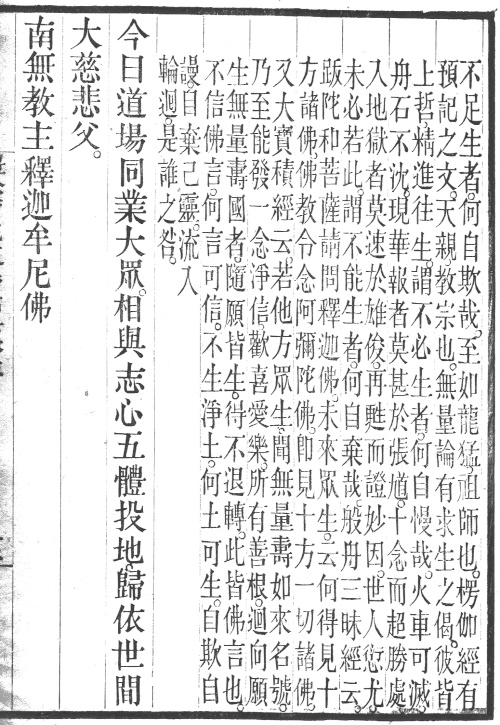 不足生者。何自欺哉。至如龍猛。祖師也。楞伽經有
預記之文。天親教宗也。無量論有求生之偈。彼皆
上哲精進往生。謂不必生者。何自慢哉。火車可滅。
舟石不沈。現華報者莫甚於張馗。十念而超勝處
入地獄者莫速於雄俊。再甦而證妙因。世人愆尤。
未必若此。謂不能生者。何自棄哉。般舟三昧經云。
䟦陀和菩薩請問釋迦佛。未來眾生云何得見十
方諸佛。佛教令念阿彌陀佛。即見十方一切諸佛。
又大寶積經云。若他方眾生。聞無量壽如來名號。
乃至能發一念淨信。歡喜愛樂。所有善根。迴向願
生無量壽國者。隨願皆生。得不退轉。此皆佛言也。
不信佛言。何言可信。不生淨土。何土可生。自欺自
謾。自棄己靈。流入
輪迴。是誰之咎。
今日道場同業大眾。相與志心五體投地。歸依世間
大慈悲父。
南無教主釋迦牟尼佛